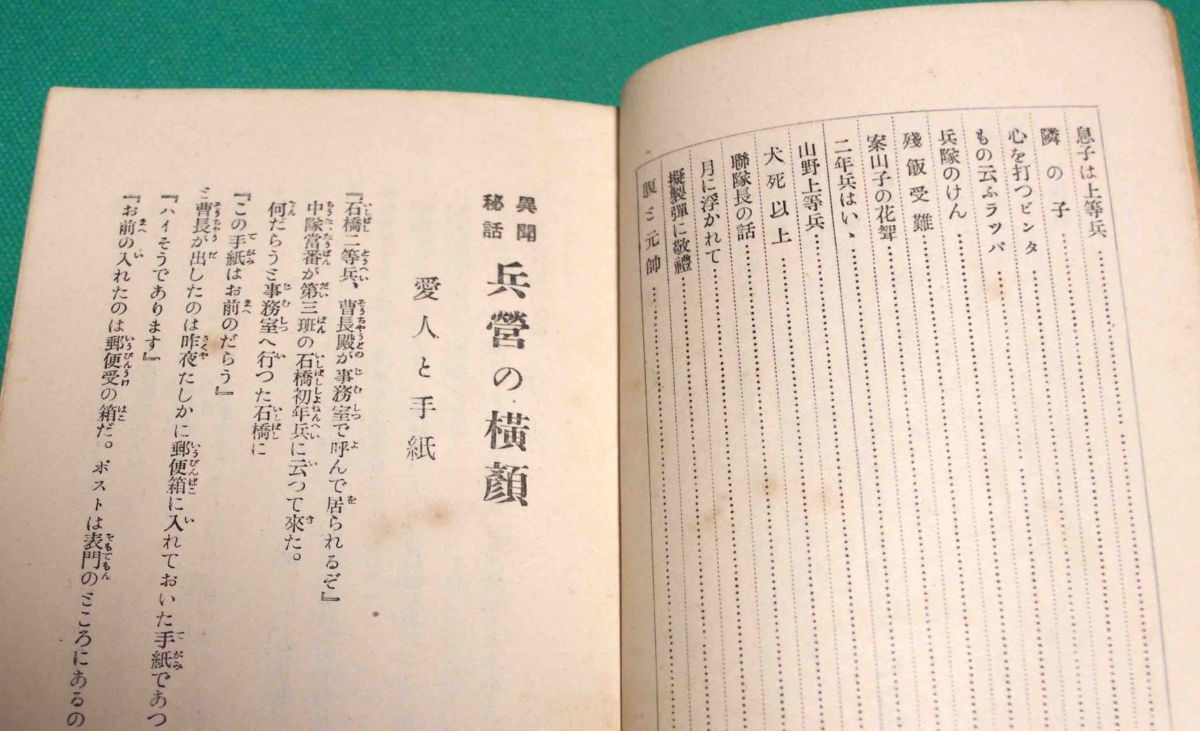 息子は上等兵
隣の子
心を打つビンタ
もの云ふラッパ
兵隊のけん
殘飯受難
案山子の花聟
二年兵はい、
山野上等兵
犬死以上
聯隊長の話
月に浮かれて
擬製彈に敬禮
腹ミ元帥
異聞
秘話
兵營の横顏
愛人と手紙
『石橋二等兵、曹長殿が事務室で呼んで居られるぞ』
中隊當番が第三班の石橋初年兵に云つて來た。
何だらうと事務室へ行つた石橋に
『この手紙はお前のだらう』
ミ曹長が出したのは昨夜たしかに郵便箱に入れておいた手紙であつ
『ハイそうであります』
『お前の入れたのは郵便受の箱だ。ポストは表門のミころにあるの